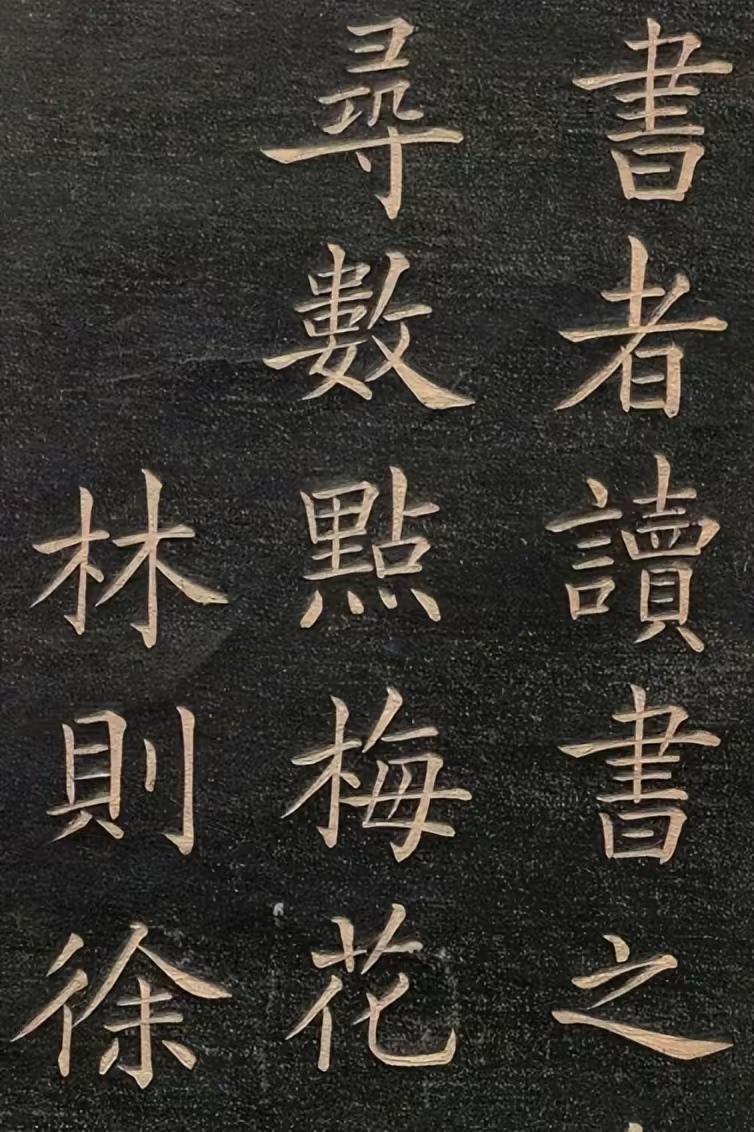 書者讀書之
尋數點梅花
林則徐